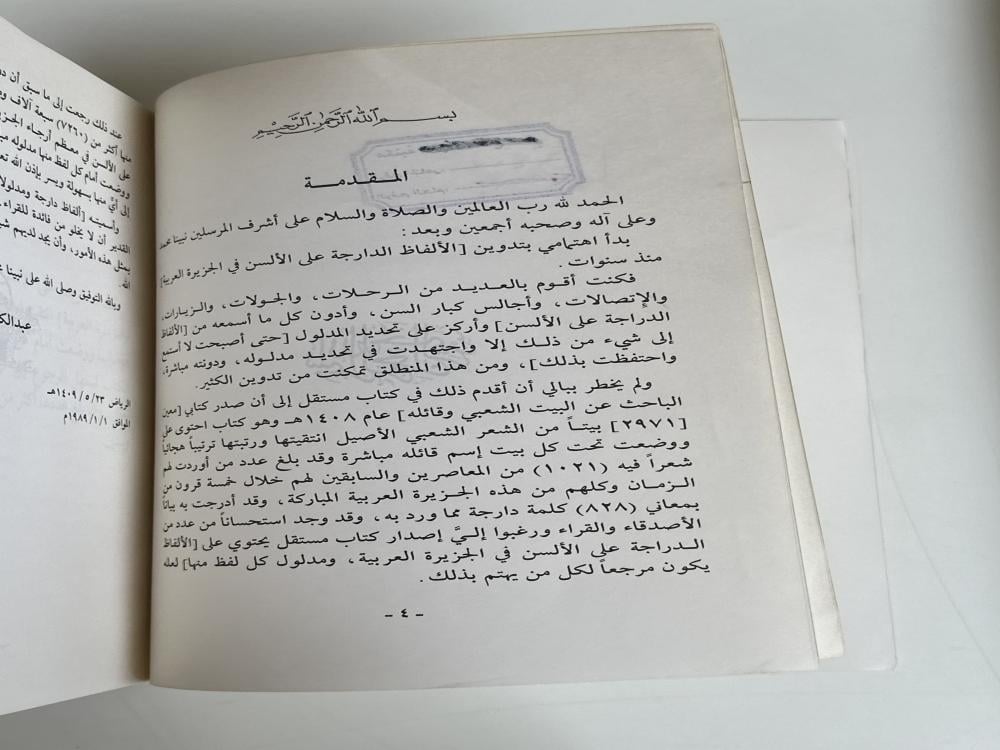 بسم الله الرحمن الرحيم
المقدمة
الحمد لله رب العالمين والصلاة والسلام على أشرف المرسلين نبينا محمد
وعلى آله وصحبه أجمعين وبعد :
بدأ اهتمامي بتدوين [الألفاظ الدارجة على الألسن في الجزيرة العربية]
منذ سنوات .
فكنت أقوم بالعديد من الرحلات، والجولات، والزيارات،
والإتصالات، وأجالس كبار السن، وأدون كل ما أسمعه من [الألفاظ
الدراجة على الألسن] وأركز على تحديد المدلول [حتى أصبحت لا أستمع
إلى شيء من ذلك إلا واجتهدت في تحديد مدلوله، ودونته مباشرة،
واحتفظت بذلك]، ومن هذا المنطلق تمكنت من تدوين الكثير.
ولم يخطر ببالي أن أقدم ذلك في كتاب مستقل إلى أن صدر كتابي [معين
الباحث عن البيت الشعبي وقائله] عام ١٤٠٨هـ وهو كتاب احتوى على
[٢٩٧١] بيتاً من الشعر الشعبي الأصيل انتقيتها ورتبتها ترتيباً هجائياً
ووضعت تحت كل بيت إسم قائله مباشرة وقد بلغ عدد من أوردت لهم
شعراً فيه (١٠٢١) من المعاصرين والسابقين لهم خلال خمسة قرون من
الزمان وكلهم من هذه الجزيرة العربية المباركة، وقد أدرجت به بياناً
بمعاني (٨٢٨) كلمة دارجة مما ورد به، وقد وجد استحساناً من عدد من
الأصدقاء والقراء ورغبوا إليَّ إصدار كتاب مستقل يحتوي على [الألفاظ
الدراجة على الألسن في الجزيرة العربية، ومدلول كل لفظ منها] لعله
يكون مرجعاً لكل من يهتم بذلك.
- ٤ -
عند ذلك رجعت إلى ما سبق أن
منها أكثر من (٧٢٦٠) سبعة آلاف
على الألسن في معظم أرجاء
ووضعت أمام كل لفظ منها مدلوله
إلى أيٍّ منها بسهولة ويسر بإذن الله
وأسميته [ألفاظ دارجة
القدير أن لا يخلو من فائدة للقراء
بمثل هذه الأمور، وأن يجد لديهم
الله.
وبالله التوفيق وصلى الله على نبينا
الرياض ١٤٠٩/٥/٢٣هـ
الموافق ١٩٨٩/١/١م